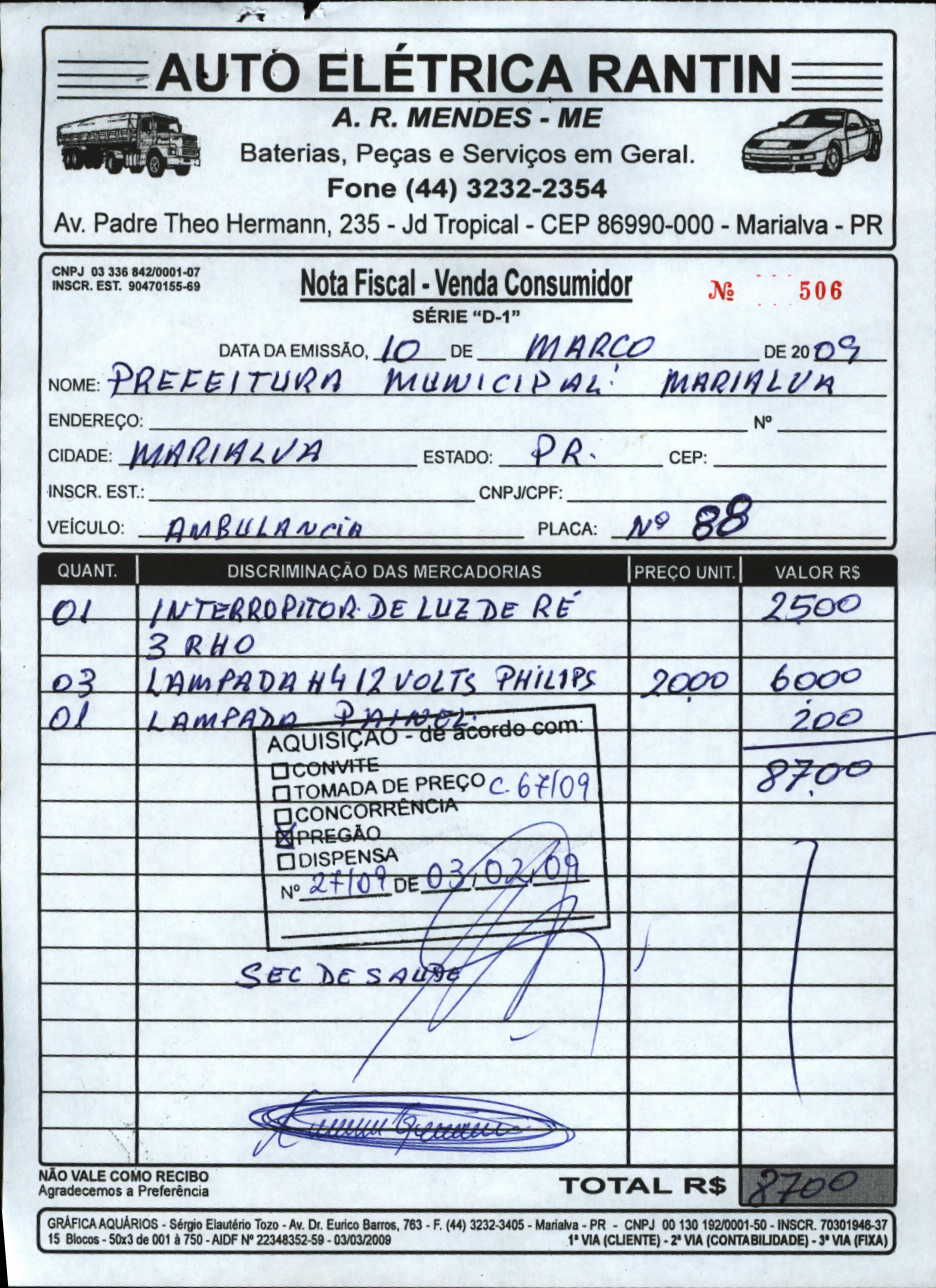 AUTO ELÉTRICA RANTIN
A. R. MENDES - ME
Baterias, Peças e Serviços em Geral.
Fone (44) 3232-2354
Av. Padre Theo Hermann, 235 - Jd Tropical - CEP 86990-000 - Marialva - PR
CNPJ 03 336 842/0001-07
INSCR. EST. 90470155-69
Nota Fiscal - Venda Consumidor
Nº 506
SÉRIE "D-1"
DATA DA EMISSÃO, 10 DE MARCO DE 2009
NOME: PREFEITURA MUNICIPAL MARIALVA
ENDEREÇO: Nº
CIDADE: MARIALVA ESTADO: PR. CEP:
INSCR. EST.: CNPJ/CPF:
VEÍCULO: AMBULANCIA PLACA: Nº 88
QUANT. DISCRIMINAÇÃO DAS MERCADORIAS PREÇO UNIT. VALOR R$
01 INTERROPITOR DE LUZ DE RÉ 2500
3 RHO
03 LAMPADA H4 12 VOLTS PHILIPS 2000 6000
01 LAMPADA PAINEL 200
8700
AQUISIÇÃO - de acordo com:
CONVITE
TOMADA DE PREÇO C 67/09
CONCORRÊNCIA
PREGÃO
DISPENSA
Nº 27/09 DE 03/02/09
SEC DE SAUDE
NÃO VALE COMO RECIBO
Agradecemos a Preferência
TOTAL R$ 8700
GRÁFICA AQUÁRIOS - Sérgio Elautério Tozo - Av. Dr. Eurico Barros, 763 - F. (44) 3232-3405 - Marialva - PR - CNPJ 00 130 192/0001-50 - INSCR. 70301946-37
15 Blocos - 50x3 de 001 à 750 - AIDF Nº 22348352-59 - 03/03/2009 1ª VIA (CLIENTE) - 2ª VIA (CONTABILIDADE) - 3ª VIA (FIXA)